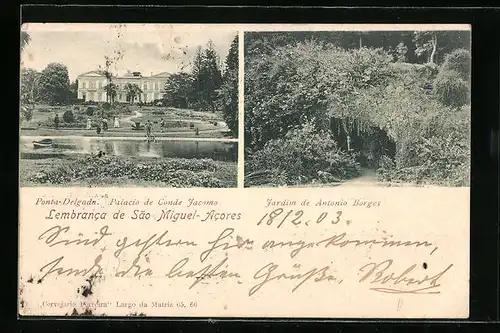 Ponta-Delgada. Palacio de Conde Jacomo
Jardim de Antonio Borges
Lembrança de São Miguel-Açores
18/2. 03.
Sind gestern hier angekommen,
sende die besten Grüße, Robert
"Cervejaria Pereira" Largo da Matriz 65, 66